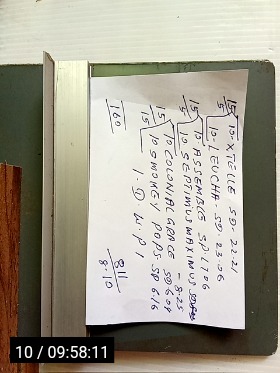 15 10 - XTELLE SD - 22.21
5 10 LEUCHA - SD - 23.06
15 10 ASSEMBLE SP 1706
5 10 SEPTIMUS MAXIMUS
- 8.25
15 10 COLONIAL GRACE SD 608
15 10 SMOKEY POPS SD 616
1. ① W. P 1
160
811
8.50
10 / 09:58:11